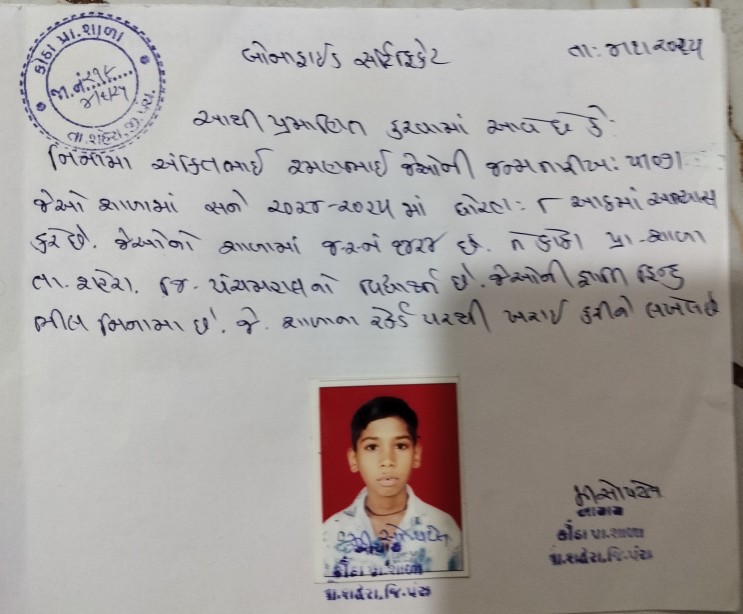 કોઠા પ્રા.શાળા
જા.નં.૨૧૮
તા.શહેરા.જી.પંચ.
બોનાફાઈડ સર્ટિફિકેટ
આથી પ્રમાણિત કરવામાં આવે છે કે
નિનામા અંકિતભાઈ રમણભાઈ જેઓની જન્મ તારીખ:
જેઓ શાળામાં સને ૨૦૨૪-૨૦૨૫ માં ધોરણ: ૮ આઠમાં અભ્યાસ
કરે છે. જેઓનો શાળામાં જ.ર.નં છે. તે કોઠા પ્રા-શાળા
તા. શહેરા. જિ. પંચમહાલ નો વિદ્યાર્થી છે. જેઓની જ્ઞાતિ હિન્દુ
ભીલ નિનામા છે. જે. શાળાના રેકર્ડ પરથી ખરાઈ કરીને લખેલ છે
આચાર્ય
કોઠા પ્રા.શાળા
તા.શહેરા,જિ.પંચ
આચાર્ય
કોઠા પ્રા.શાળા
તા.શહેરા,જિ.પંચ